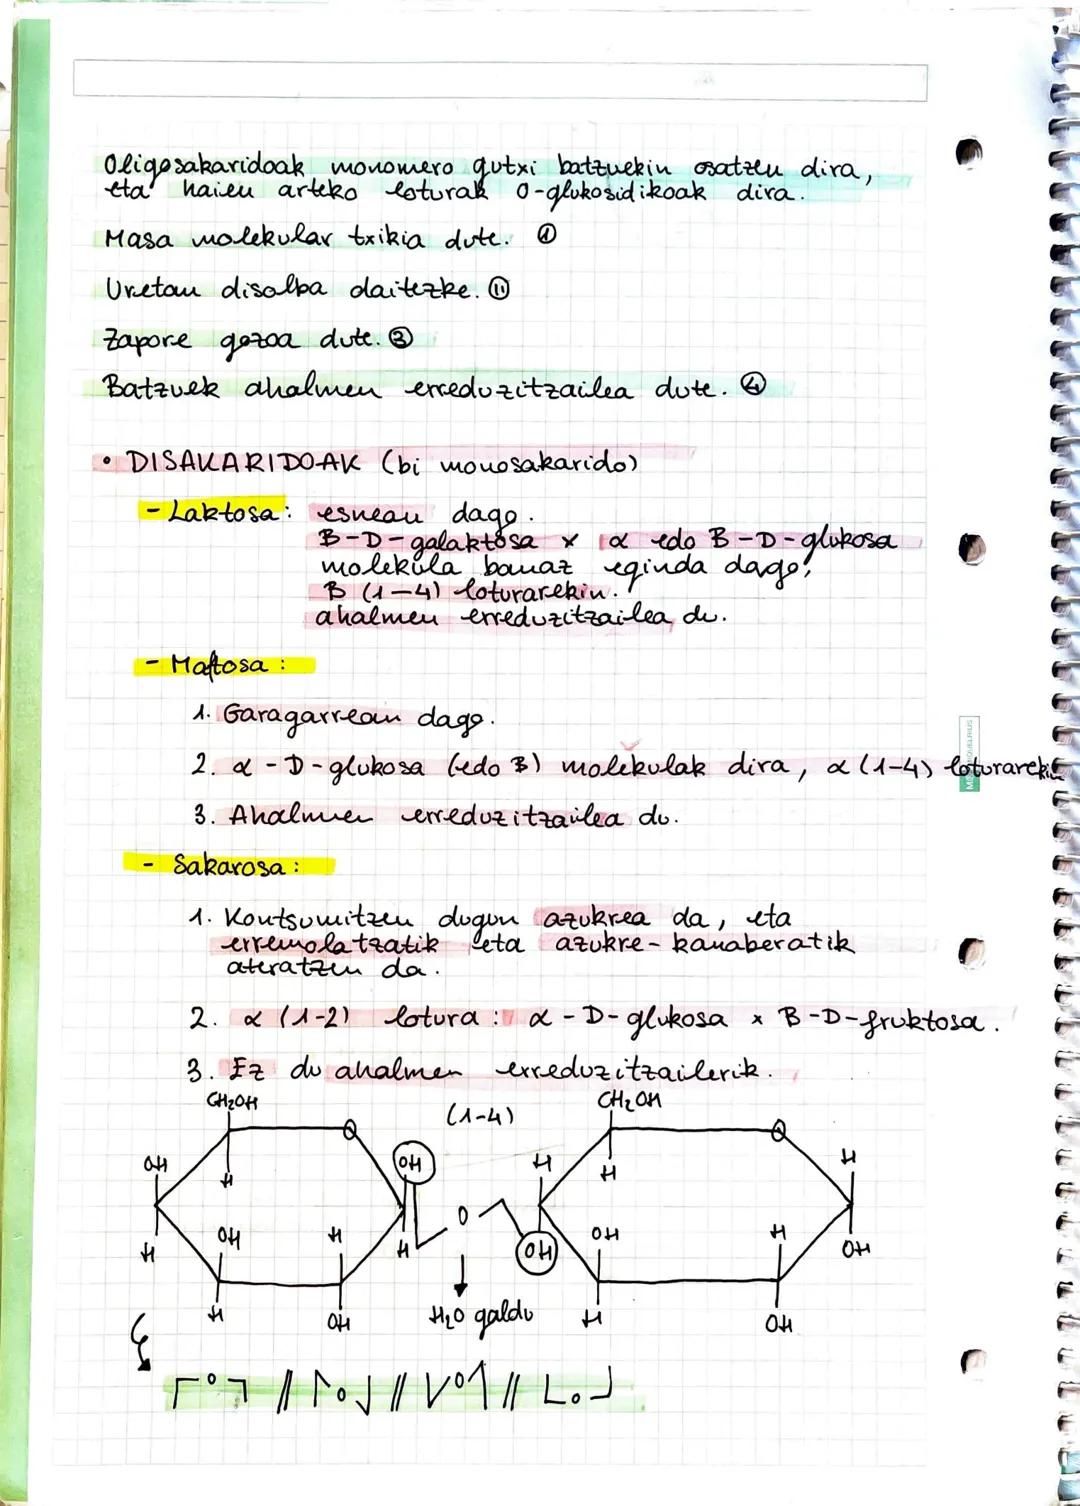 Oligosakaridoak monomero gutxi batzuekin osatzen dira,
eta haien arteko loturak O-glukosidikoak dira.
Masa molekular txikia dute. ①
Uretan disolba daitezke. ⑪
Zapore gozoa dute. ③
Batzuek ahalmen erreduzitzailea dute. ④
• DISAKARIDOAK (bi monosakarido)
- Laktosa: esnean dago.
B-D-galaktosa x α edo B-D-glukosa
molekula banaz eginda dago,
B (1-4) loturarekin.
ahalmen erreduzitzailea du.
- Maltosa:
1. Garagarrean dago.
2. α-D-glukosa (edo B) molekulak dira, α (1-4) loturarekin
3. Ahalmen erreduzitzailea du.
- Sakarosa:
1. Kontsumitzen dugun azukrea da, eta
erremolatzatik eta azukre-kanaberatik
ateratzen da.
2. α (1-2) lotura: α-D-glukosa x B-D-fruktosa.
3. Ez du ahalmen erreduzitzailerik.
CH₂OH (1-4) CH₂OH
O O
OH H OH H H H
O
H OH H H OH OH H OH
H OH H₂O galdu H OH